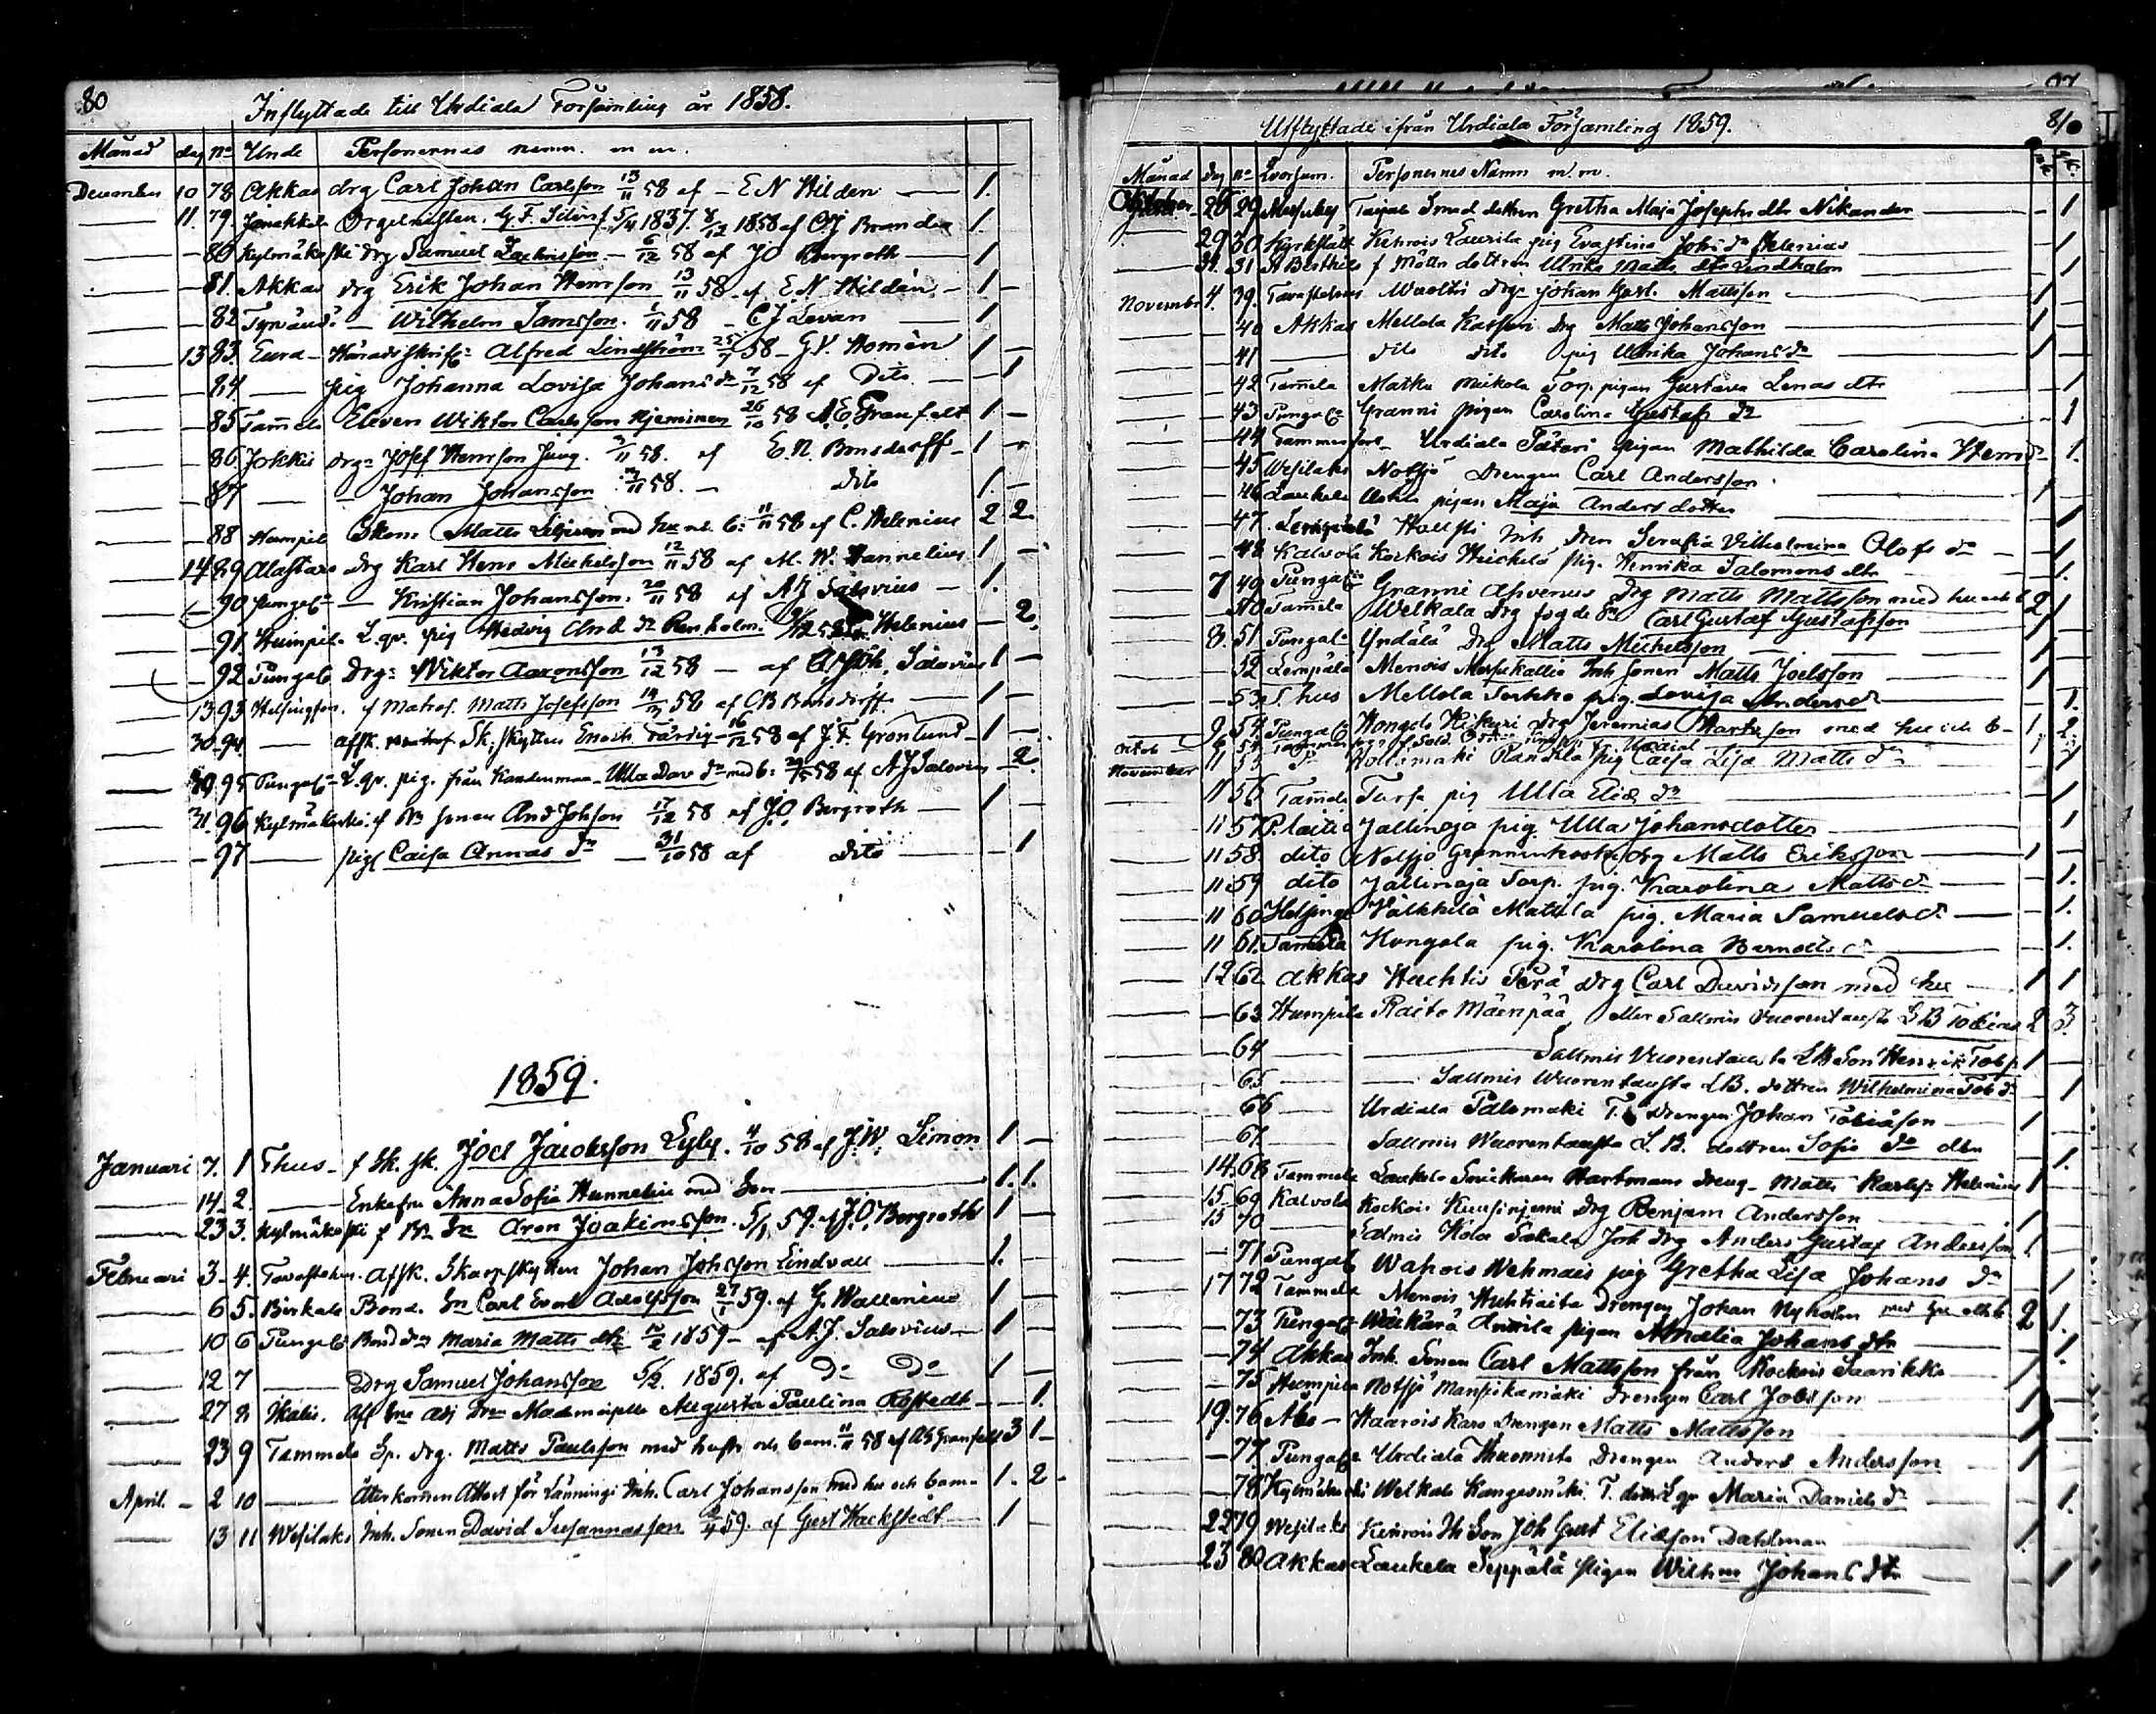 80
Inflyttade till Urdiala Församling år 1858.
Månad dag No Unde Personernas namn m m.
December 10 78 Akkas drg Carl Johan Carlsson 13/11 58 af E N Hilden 1.
11. 79. Janakkala Orgelnisten G. F. 5/4 1837. 8/12 1858 af Brander 1.
80 Kylmäkoski drg Samuel Zachrisson 6/12 58 af J O Bergroth 1
81. Akkas drg Erik Johan Henrsson 13/11 58 af E N Hildén 1
82 Wilhelm Samsson. 1/11 58 C J Levan 1
13 83. Eura Häradsskrifr Alfred Lindström 25/7 58 G. V. Homén 1
84 pig Johanna Lovisa Johans dr 7/12 58 af Dito 1
85 Tammela Eleven Wiktor Carlsson Njeminen 26/10 58 A. E. Granfelt 1
86 Jokkis drg Josef Henrsson Ljung 58. af E. N. Bonsdorff 1
87 Johan Johansson 58. dito 1.
88 Humpil Matts med hu och b: 11/11 58 af C. Helenius 2 2.
14 89 Alastaro drg Karl Henr Michelsson 12/11 58 af M. W. Hannelius 1
90 Pungal Kristian Johansson. 20/11 58 af A J Salovius 1.
91. Humpil. L. qv. pig Hedvig And dr Helenius 2.
92 Pungal Drg Wiktor Aaronsson 13/12 58 af Salovius 1
13 93 Helsingfors. f Matros. Matts Josefsson 14/3 58 af C B Bonsdorff 1
30. 94. afsk. Sk. skytten Enoch Färdig 16/12 58 af J. F. Grönlund 1
30 95 Pungal L. qv. pig. från Ulla Dav dr med b: 58 af A J Salovius 2.
31. 96 Kylmäkoski f Bs sonen And Johsson 17/12 58 af J. O. Bergroth 1
97 pig Caisa Annas dr 31/10 58 af dito 1
1859.
Januari 7. 1 Thus f Sk. sk. Joel Jacobsson Lyly. 4/10 58 af J. W. Limon 1
14 2. Enkefru Anna Sofia Hannelius med Son 1. 1.
23 3. Kylmäkoski f Bs Sn Aron Joakimsson 5/1 59. af J. O. Bergroth 1
Februari 3 4. Tavastehus. Afsk. Skarpskytten Johan Johsson Lindvall 1.
6 5. Birkala Bond. Sn Carl Evert Adolfsson 27/1 59. af G. Wallenius 1
10 6 Pungal Bond dr Maria Matts dtr 1859 af A. J. Salovius 1
12 7 Drg Samuel Johansson 5/2. 1859. af Do Do 1
27 8 Ikalis. Mademoiselle Augusta Paulina 1.
23 9 Tammela Sp. drg. Matts Paulsson med hustr och barn. 11/11 58 af A E Granfelt 3 1
April 2 10 Återkommen Attest för Inh. Carl Johansson med hu och barn 1. 2
13 11 Wesilaks Inh. Sonen David Susannasson 2/4 59. af Gust Hackstedt 1
81
Utflyttade ifrån Urdiala Församling 1859.
Månad Dag No Hvarsam. Personernes Namn m. m.
Oktober 28 29 Messuby dottren Gretha Maja Josephs dtr Nikander 1
29 30 Kyrkslätt Kehrois Laurila pig Evastina Johs dr Helenius 1
31. 31 St Berthils f dottren Ulrika Matts dtr Lindholm 1
November 4. 39. Tavastehus drg Johan Gust. Mattsson 1
40 Akkas Mellola Kasseri drg Matts Johansson 1
41 dito dito pig Ulrika Johans dr 1
42 Tammela Matku Mickola Torp. pigan Gustava Lenas dtr 1
43 Pungal Granni pigan Carolina Gustafs dr 1
44 Tammerfors Urdiala Säteri pigan Mathilda Carolina Henr dr 1.
45 Wesilaks Notsjö Drengen Carl Andersson 1
46 Laukela pigan Maja Anders dotter 1
47 Lempälä Inh dren Serafia Vilhelmina Olofs dr 1
48 Kalvola Kockois Heickelä pig. Henrika Salomons dtr 1.
7 49 Pungal Granni Ahvenus drg Matts Mattsson med hu och b 2
50 Tammela Welkala drg Carl Gustaf Gustafsson 1
8. 51 Pungal Yndälä drg Matts Michelsson 1
52 Lempälä Menois Inh Sonen Matts Joelsson 1
53 T. hus Mellola pig. Lovisa Anders dr 1.
9 54 Pungal Hongola Kikuri drg Jeremias Hartsson med hu och b 1 2
Octob
November 11 55 Do Rantila pig Caisa Lisa Matts dr 1
11 56 Tammela Tursa pig Ulla Elias dr 1
11 57 P. laitio Jallinoja pig. Ulla Johansdotter 1.
11 58. dito Notsjö drg Matts Eriksson 1
11 59 dito Jallinoja Torp. pig. Karolina Matts dr 1.
11 60 Helsinge Välkkilä Mattila pig. Maria Samuels dr 1.
11 61. Tammela Kongola pig. Karolina Berndts dr 1.
12 62 Akkas Huhtis Perä drg Carl Davidsson med hu 1 1
63 Humpila Raito Mäenpää eller Salmis Vuorentausta L B Tobias 2 3.
64 Salmis Vuorentausta L B Son Henrik Tobs 1
65 Salmis Wuorentausta L B. dottren Wilhelmina Tob dr 1
66 Urdiala Palomäki T. Drengen Johan Tobiasson 1
67. Salmis Wuorentausta L. B. dottren Sofia do dtr 1.
14. 68 Tammela Laukela Hartmans Dreng Matts Karlss Helenius 1
15 69 Kalvola Kockois Kuusinjemi Drg Benjam Andersson 1
15 70 Salmis Kola Sakala Joh drg Anders Gustaf Andersson 1
71 Pungal Wahois Wehmais pig Gretha Lisa Johans dr 1
17 72 Tammela Menois Huhtiaita Drengen Johan Nyholm med hu och b 2 1.
73 Pungal Anttila pigan Amalia Johans dtr 1.
74 Akkas Inh. Sonen Carl Mattsson från Kockois 1
75 Humpila Notsjö Mansikamäki Drengen Carl Jobsson 1
19. 76 Åbo Haarois Karo Drengen Matts Mattsson 1
77 Pungal Urdiala Drengen Anders Andersson 1
78 Kylmäkoski Welkala Kangasmäki T. Maria Daniels dr 1.
22 79 Wesilaks Kehrois Son Joh Gust Eliasson Dahlman 1.
23 80 Akkas Laukela Seppälä pigan Wilhm Johans dtr 1